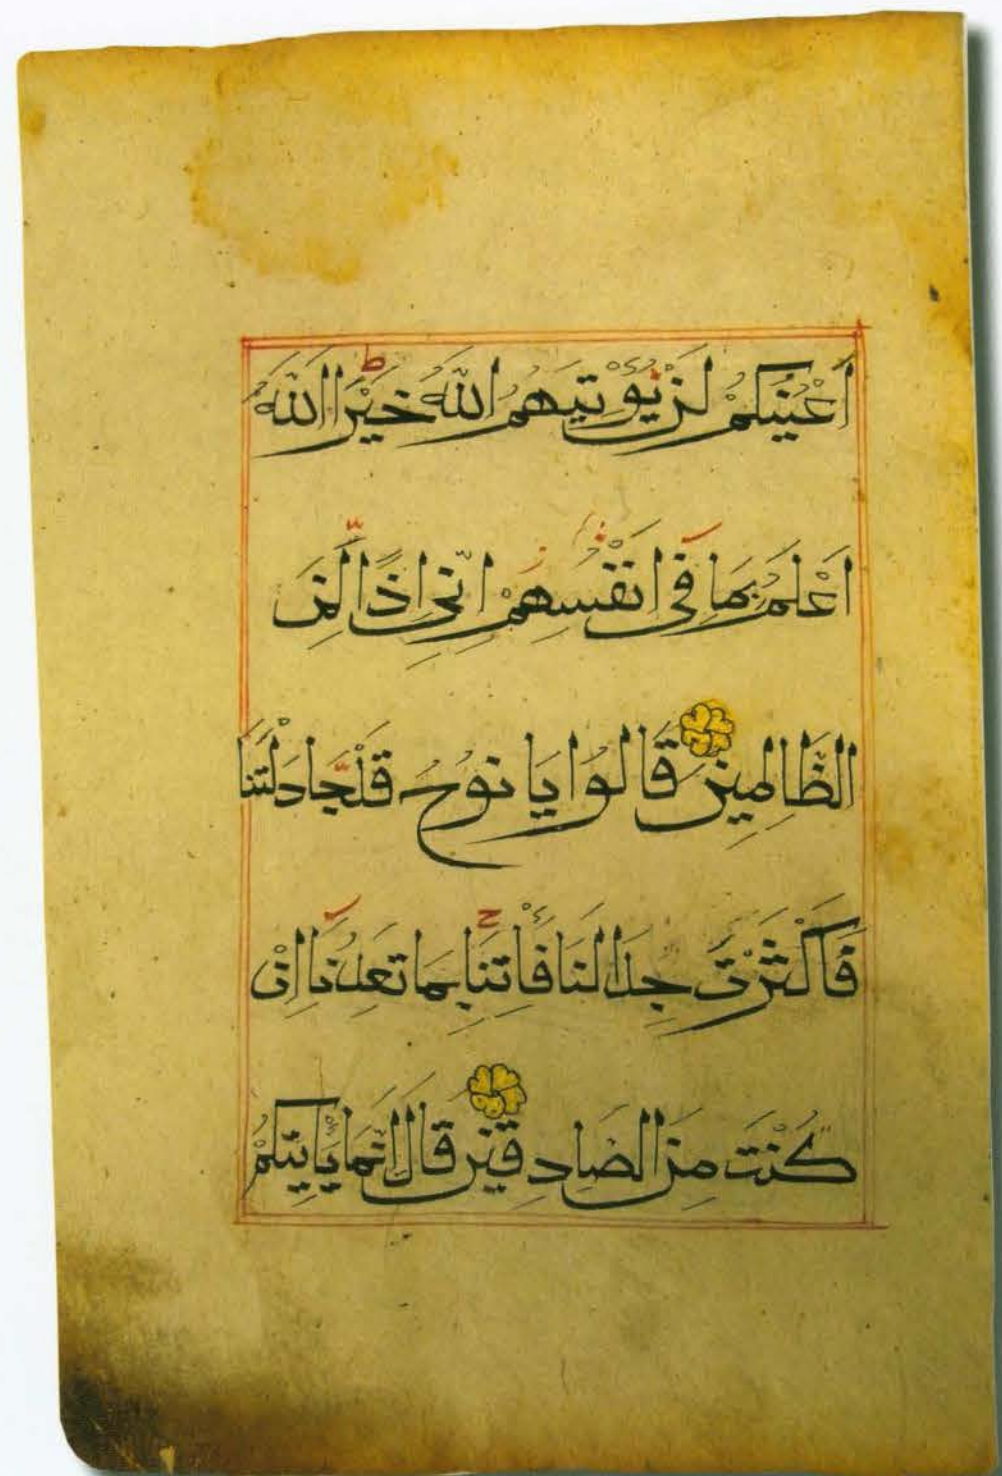 اَعْيُنُكُمْ لَنْ يُؤْتِيَهُمُ اللّٰهُ خَيْرًا اَللّٰهُ
اَعْلَمُ بِمَا فِى اَنْفُسِهِمْ اِنِّى اِذًا لَمِنَ
الظَّالِمِينَ قَالُوا يَا نُوحُ قَدْ جَادَلْتَنَا
فَاَكْثَرْتَ جِدَالَنَا فَأْتِنَا بِمَا تَعِدُنَا اِنْ
كُنْتَ مِنَ الصَّادِقِينَ قَالَ اِنَّمَا يَأْتِيكُمْ